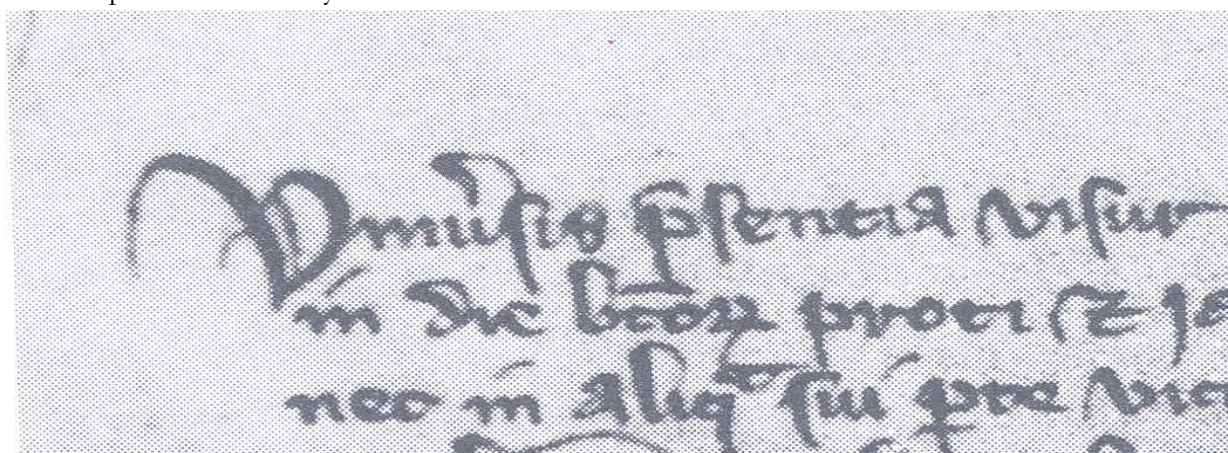 Vniu'sis p̄sentia visur
in die btō♃ proti ⁊ Ja
nec in aliqᵃ sui ꝑte vic